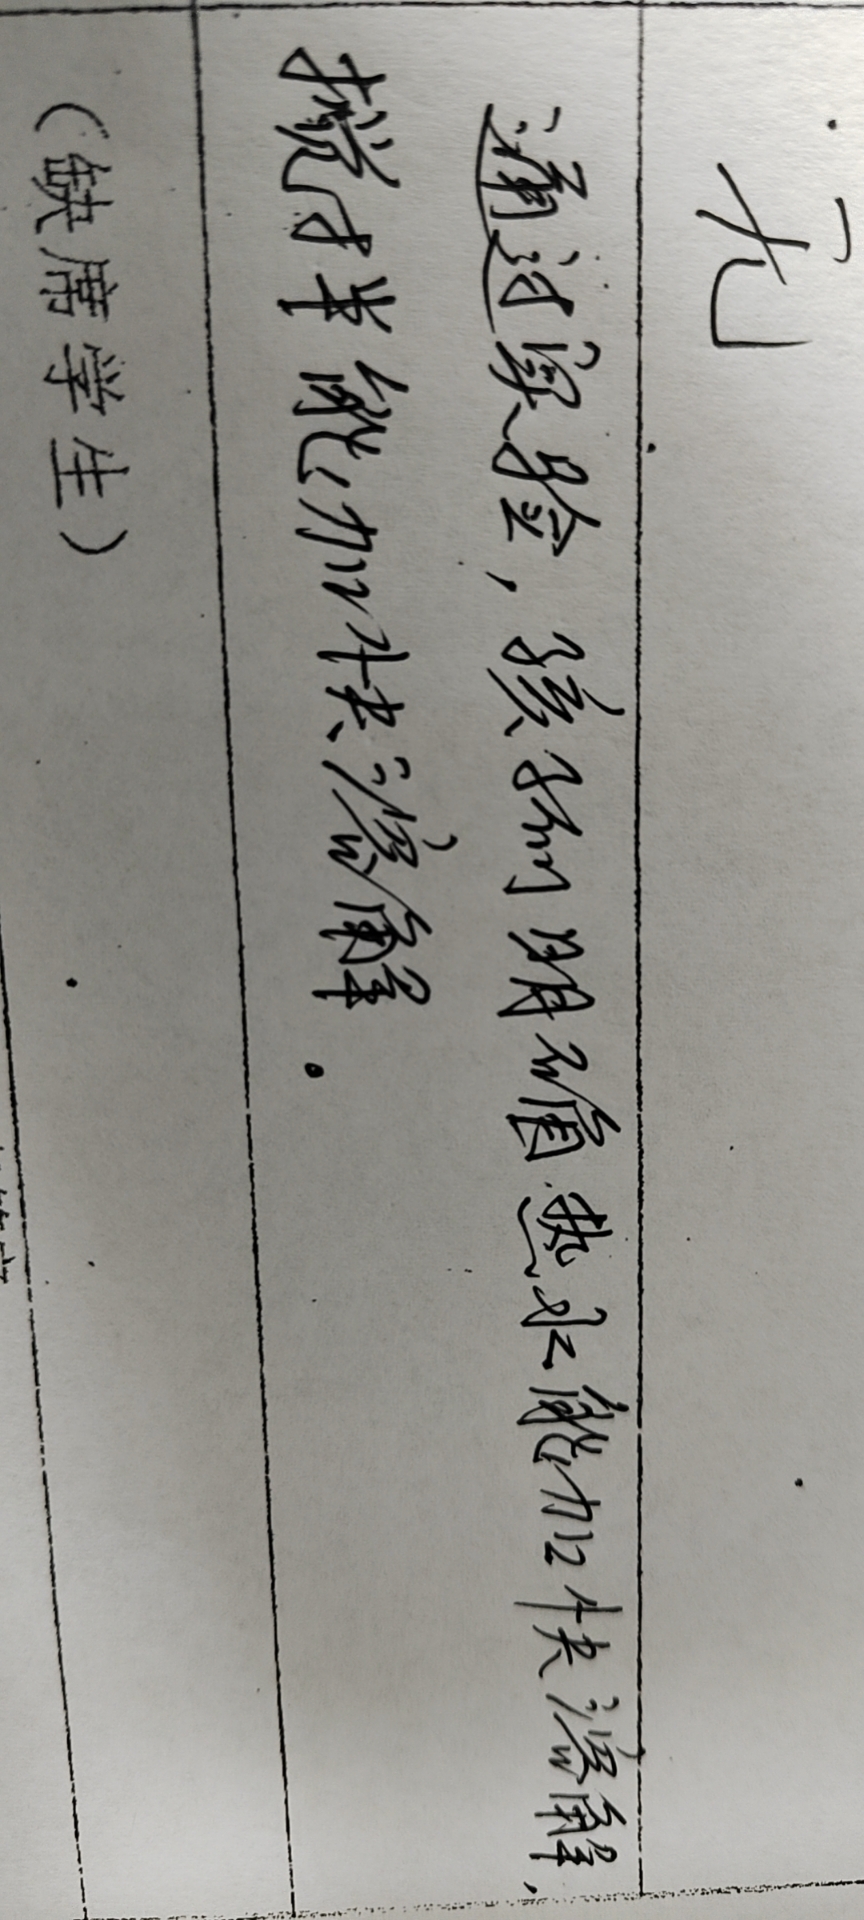 无
通过实验，孩子们明确热水能加快溶解，
搅拌能加快溶解。
（缺席学生）